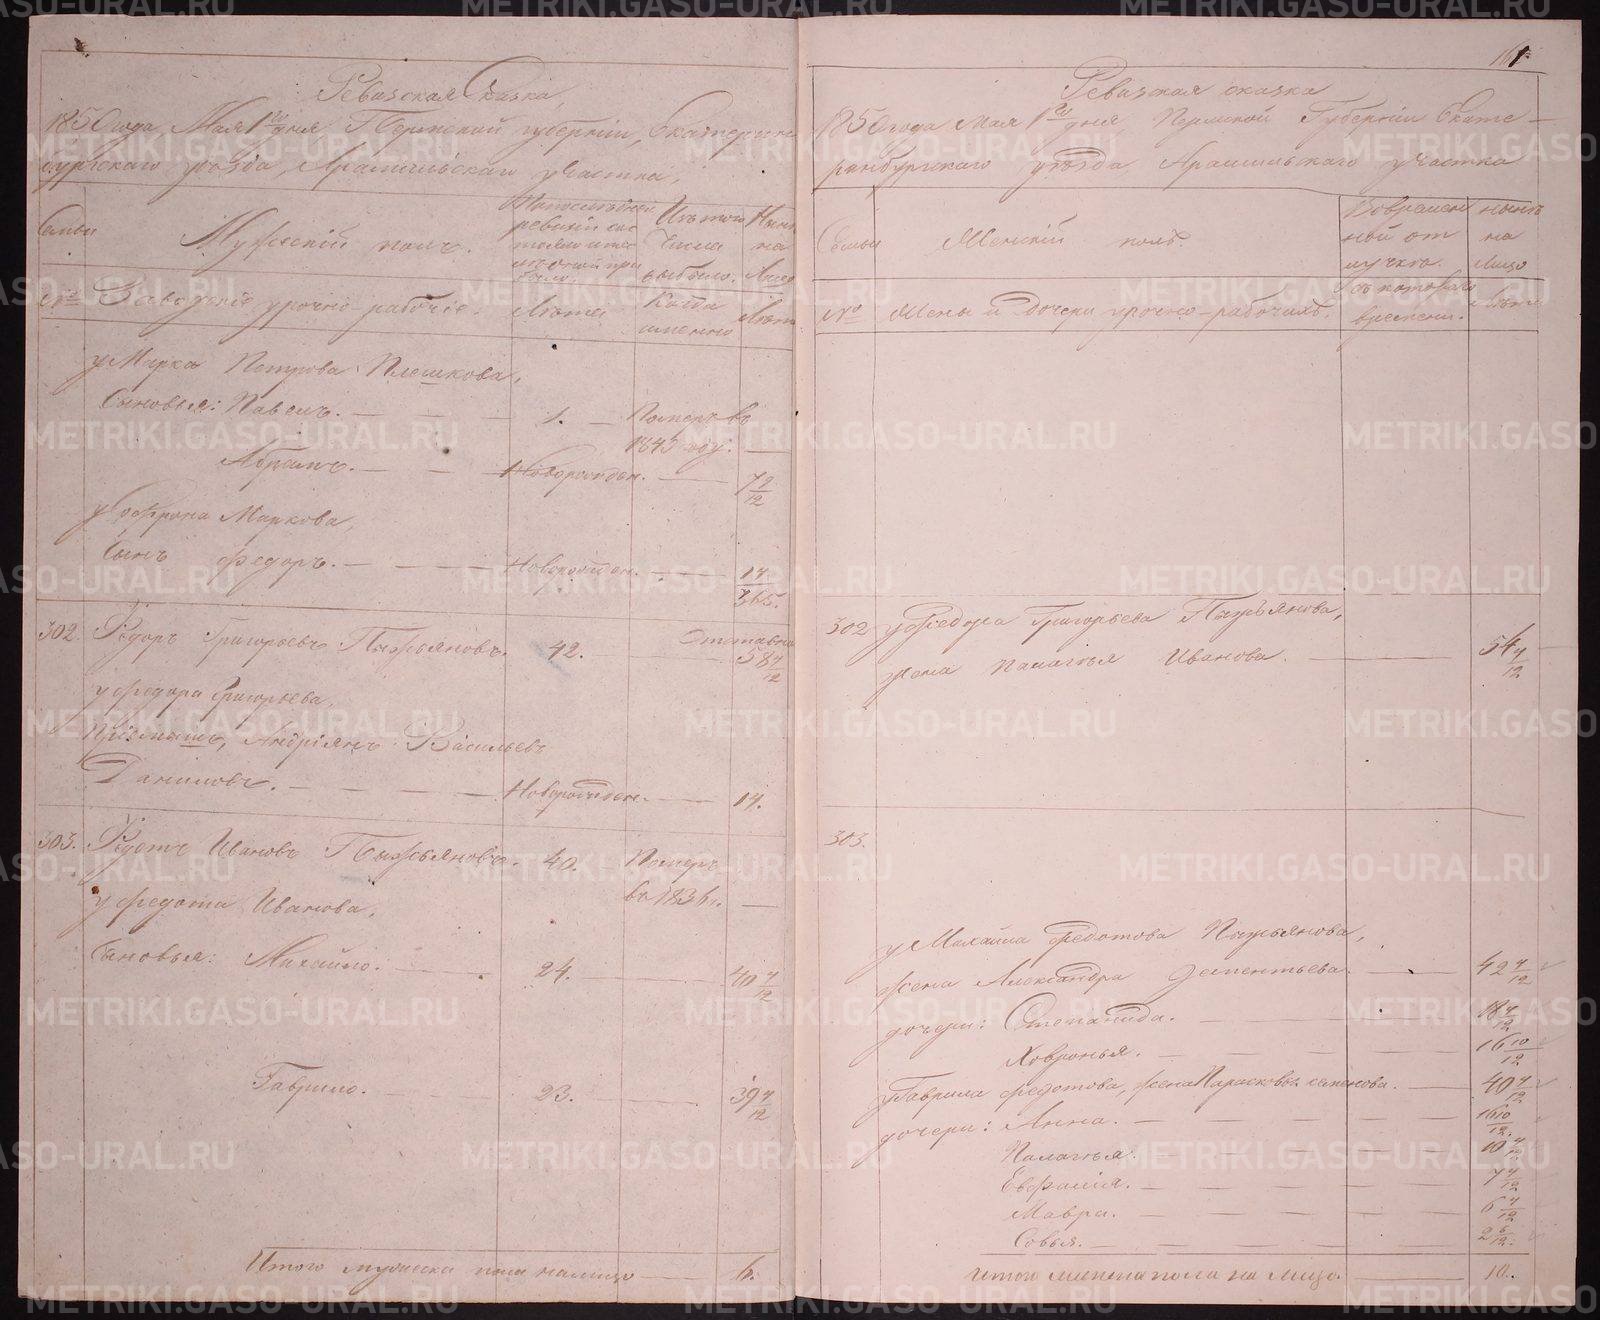 Ревизская Сказка,
1850 года, Мая 1го дня Пермской губернии, Екатерин
бургского уезда, Арамильскаго участка,
Семьи
Мужескій полъ.
По последней ревизіи состояло и после оной прибыло.
Изъ того числа выбыло.
Ныне на лицо
№ Заводскіе урочно рабочіе.
Лета
Когда именно
Лета
у Марка Петрова Плешкова,
Сыновья: Павелъ. — 1. — Померъ въ
1843 году. —
Абрамъ. — Новорожден. — 7 9/12
у Софрона Маркова,
Сынъ Федоръ. — Новорожден. — 14
302. Федоръ Григорьевъ Пыжьяновъ. 42. — 58 4/12
у Федора Григорьева,
Пріемышъ, Андріянъ Васильевъ
Даниловъ. — Новорожден. — 14.
303. Федотъ Ивановъ Пыжьяновъ. 40. Померъ
въ 1836 г. —
у Федота Иванова,
Сыновья: Михайло. — 24. — 40 4/12
Гаврило. — 23. — 39 4/12
Итого мужеска пола налицо — 6.
161
Ревизская сказка
1850 года Мая 1го дня, Пермской Губерніи Екате-
ринбургскаго уезда, Арамильскаго участка
Семьи
Женскій полъ.
Во временной отлучке.
ныне на лицо
№ Жены и дочери урочно-рабочихъ.
Съ котораго времени.
Лета
302 у Федора Григорьева Пыжьянова,
жена Палагья Иванова. — 54 4/12
303.
у Михайла Федотова Пыжьянова,
жена Александра Дементьева. — 42 4/12
дочери: Степанида. — 18 4/12
Ховронья. — 16 10/12
у Гаврила Федотова, жена Парасковья Семенова. — 40 4/12
дочери: Анна. — 16 10/12
Палагья. — 10 4/12
Евфамія. — 7 4/12
Мавра. — 6 4/12
Совья. — 2 6/12.
Итого женска пола на лицо. — 10.
METRIKI.GASO-URAL.RU